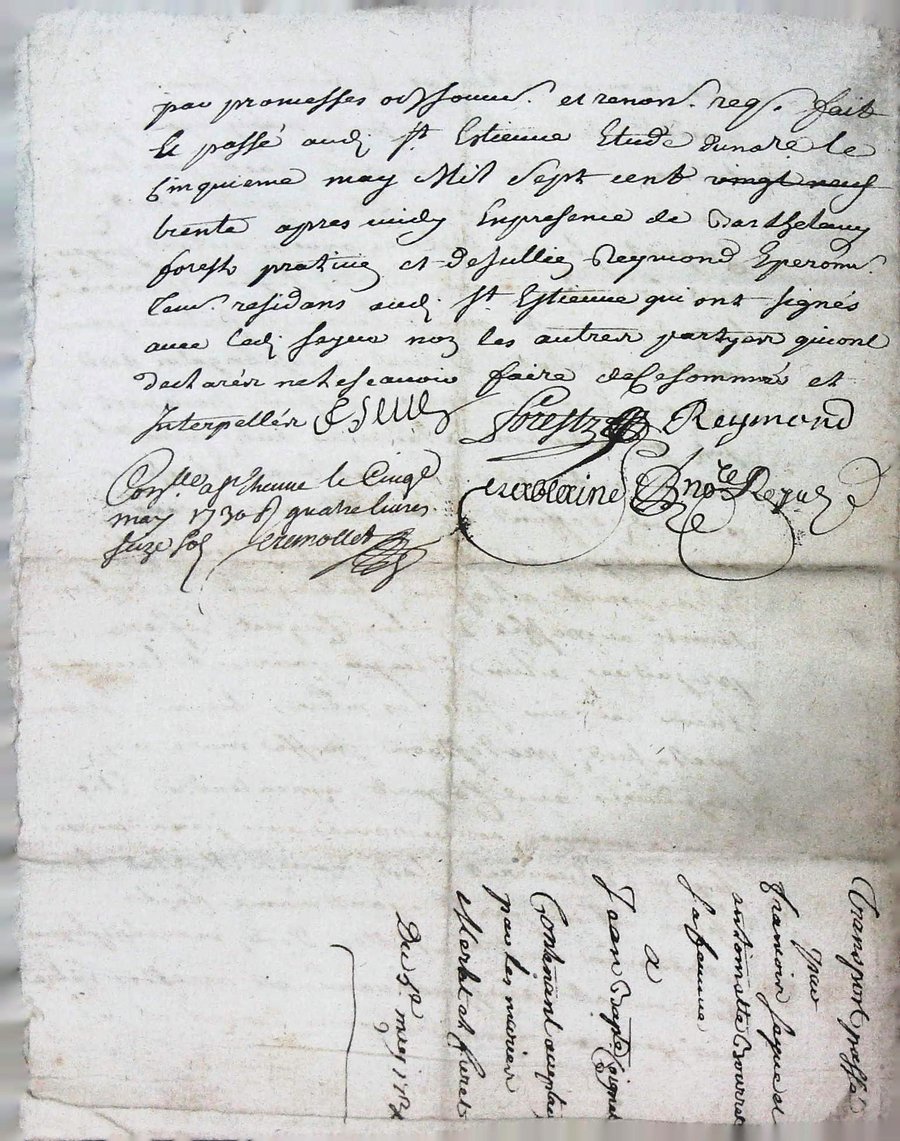 par promesses soumis. et renon. req. fait
Et passé aud. St Estienne Etude du nore. le
Cinquieme may Mil sept cent vingt neuf
trente apres midy En presence de Barthelemy
forest praticien et de Jullien Reymond Eperonr.
residans aud. St Estienne qui ont signés
avec led. fayue non les autres partyes qui ont
declarés ne le scavoir faire de Ce sommés et
Interpellés Forest Reymond
Conlle. a St Etienne le Cinqe no.re
may 1730 R quatre livres
seize sols
Transport passé
par
francois fayue et
antoinette Bourret
Sa femme
a
Jean Bapte
Contenant
par les mariés
Merlet et furet
Du 5e. may 1730